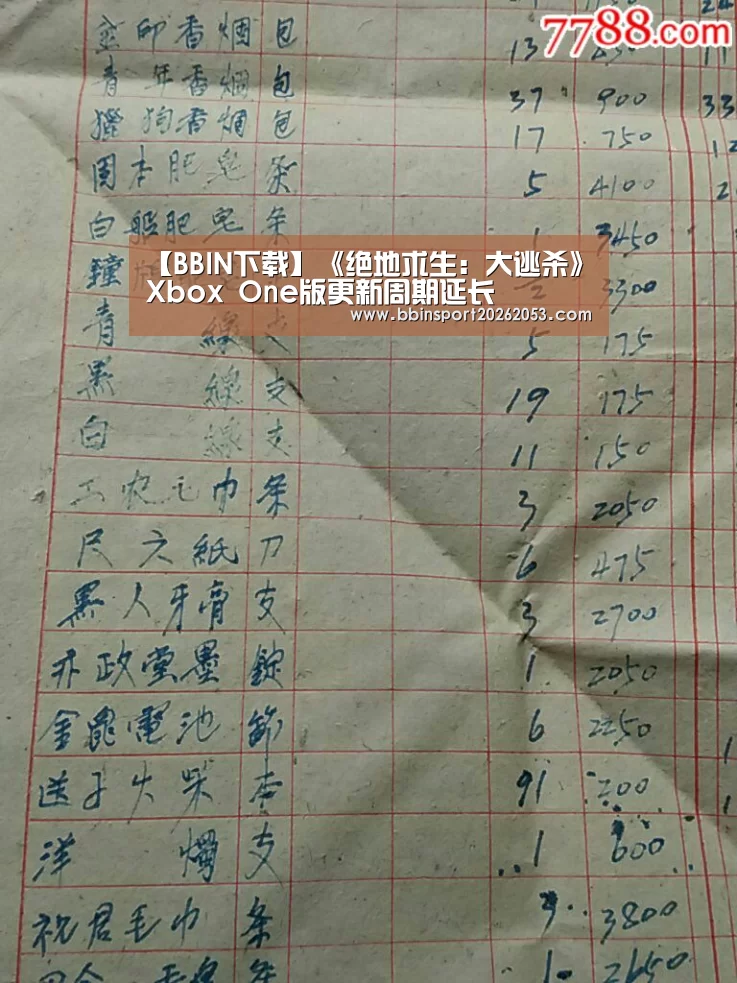 7788.com
香烟 包
13
青年香烟 包 37 900 33
獵狗香烟 包 17 750 12
固本肥皂 条 5 4100
白船肥皂 条 1 3450
鐘 2 3300
【BBIN下载】《绝地求生：大逃杀》
Xbox One版更新周期延长
www.bbinsport20262053.com
青 線 支 5 175
黑 線 支 19 175
白 線 支 11 150
工农毛巾 条 3 2050
尺六紙 刀 6 475
黑人牙膏 支 3 2700
政堂墨 錠 1 2050
金 電池 節 6 2250
送子火柴 91 200
洋燭 支 1 600
祝君毛巾 条 3 3800
1 2650